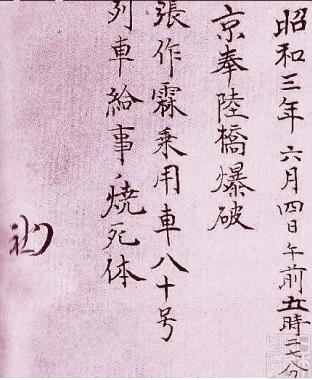 昭和三年六月四日午前五時二十分
京奉陸橋爆破
張作霖乗用車八十号
列車給事ノ焼死体